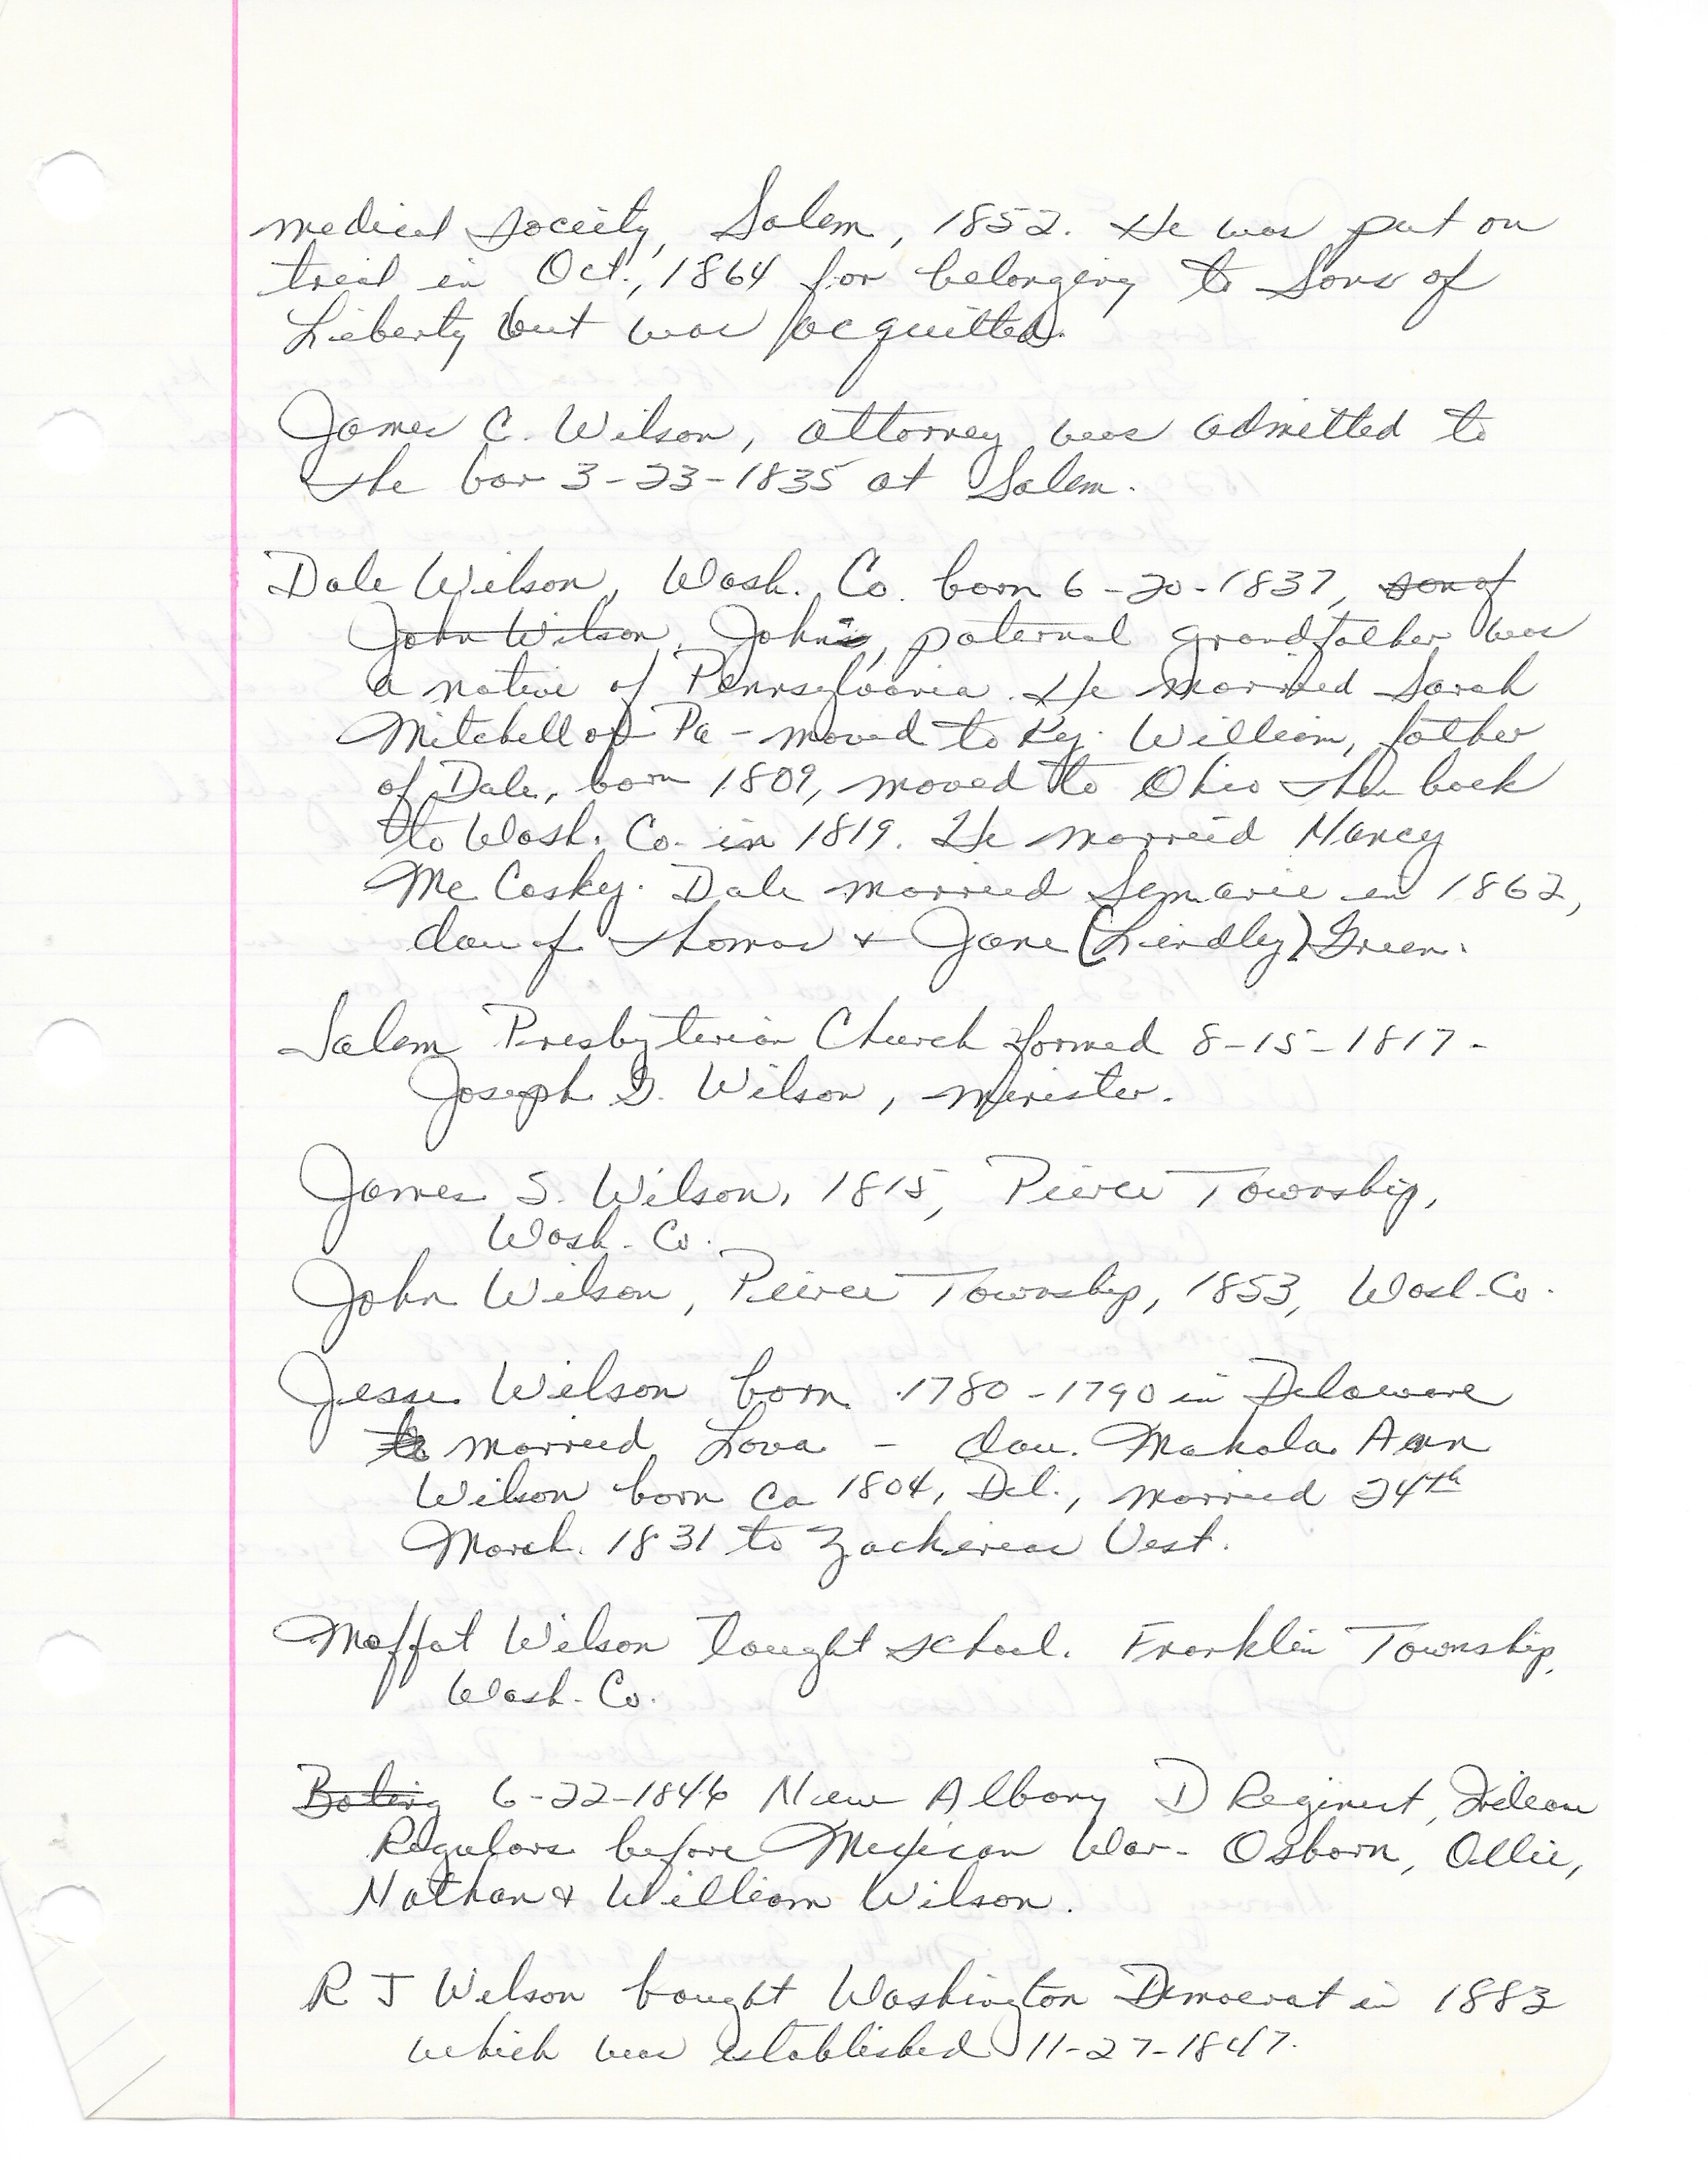 medical Society, Salem, 1852. He was put on
trial in Oct., 1864 for belonging to Sons of
Liberty but was acquitted.
James C. Wilson, attorney was admitted to
the bar 3-23-1835 at Salem.
Dale Wilson, Wash. Co. born 6-20-1837, son of
John Wilson, John, paternal grandfather was
a native of Pennsylvania. He married Sarah
Mitchell of Pa - moved to Ky. William, father
of Dale, born 1809, moved to Ohio then back
to Wash. Co. in 1819. He married Nancy
McCosky. Dale married Semarie in 1862,
dau of Thomas & Jane (Lindley) Green.
Salem Presbyterian Church formed 8-15-1817 -
Joseph G. Wilson, minister.
James S. Wilson, 1815, Pierce Township,
Wash. Co.
John Wilson, Peirce Township, 1853, Wash. Co.
Jesse Wilson born 1780-1790 in Delaware
married Lova - dau. Mahala Ann
Wilson born ca 1804, Del., married 24th
March. 1831 to Zacherias Vest.
Moffat Wilson taught school. Franklin Township,
Wash. Co.
6-22-1846 New Albany D Regiment,
Regulars before Mexican War - Osborn, Ollie,
Nathan & William Wilson.
R J Wilson bought Washington Democrat in 1883
which was established 11-27-1847.